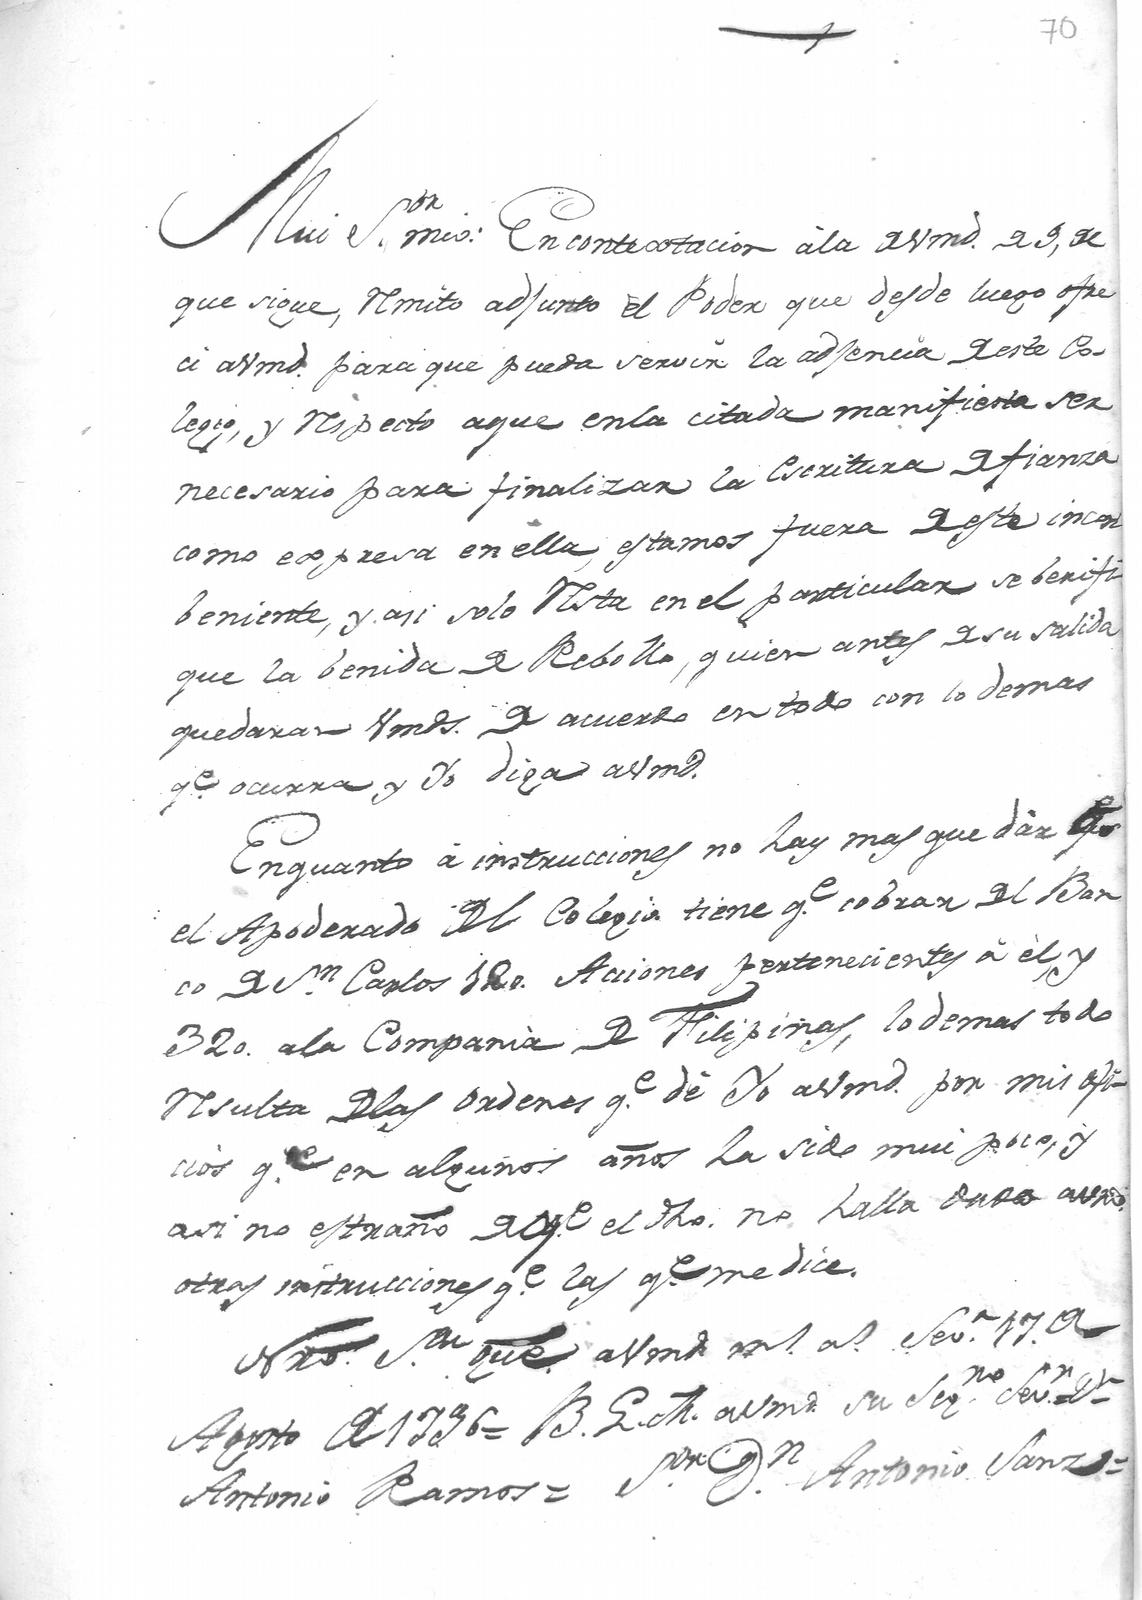 70
Mui S.or mio: En contextacion â la de Vmd. de 9, de
que sigue, Remito adjunto el Poder que desde luego ofre
ci a Vmd. para que pueda servir la adjencia de este Co-
legio, y Respecto a que en la citada manifiesta ser
necesario para finalizar la Escritura de fianza
como expresa en ella, estamos fuera de este incon
beniente, y asi solo Resta en el particular se berifi
que la benida de Rebollo, quien antes de su salida
quedaran Vmds. de acuerdo en todo con lo demas
q.e ocurra y Yo diga a Vmd.
Enquanto â instrucciones no hay mas que dâr q.e
el Apoderado del Colegio tiene q.e cobrar del Ban
co de S.n Carlos 120. Acciones pertenecientes â êl, y
320. a la Compania de Filipinas, lo demas todo
Resulta de las ordenes q.e dê Yo a Vmd. por mis ofi-
cios q.e en algunos años ha sido mui poco, y
asi no estraño de q.e el dho. no halla dado a Vmd.
otras instrucciones q.e las q.e me dice.
Nro. S.or gue. a Vmd. m.s a.s Sev.a 17. de
Agosto de 1796 = B. L. M. a Vmd. su seg.ro Serv.r = D.n
Antonio Ramos = S.or D.n Antonio Sanz =